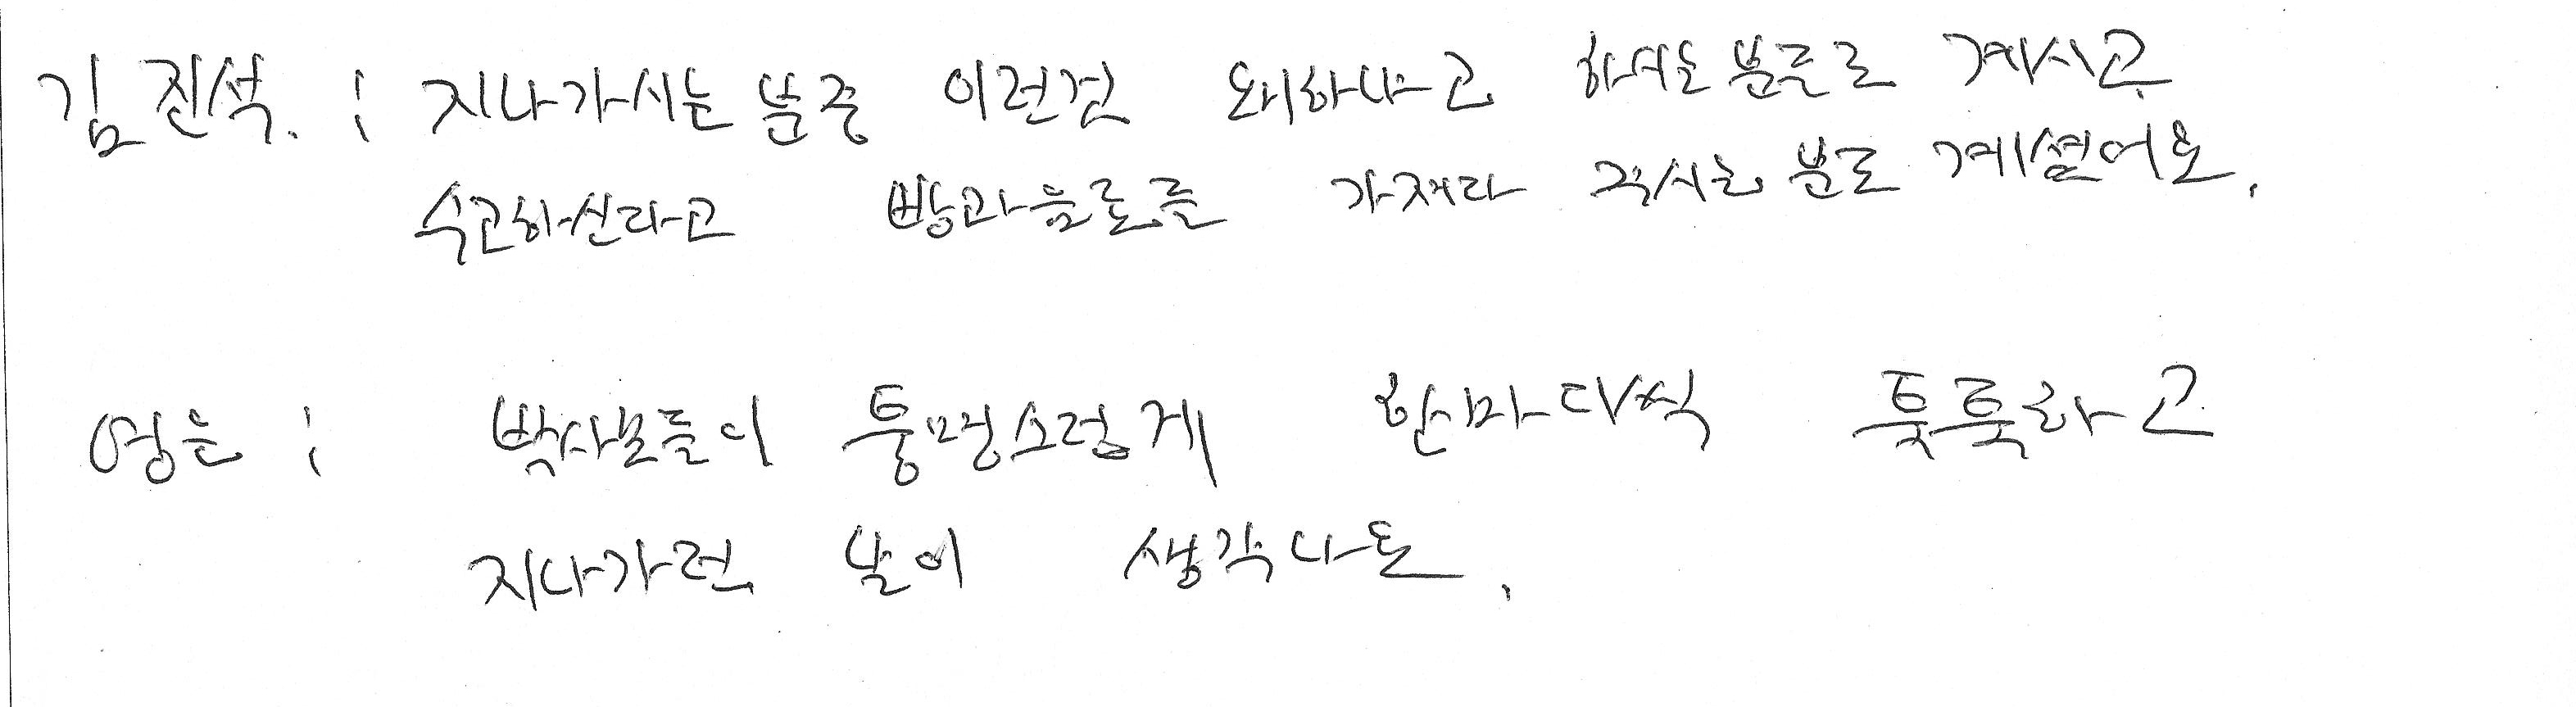 김진석. : 지나가시는 분중 이런건 왜하냐고 하며는 분들로 계시고
수고하신다고 빵과음료를 가져다 주시는 분도 계셨어요.
영은 : 박사모들이 퉁명스럽게 한마디씩 툭툭하고
지나가런 날이 생각나요.